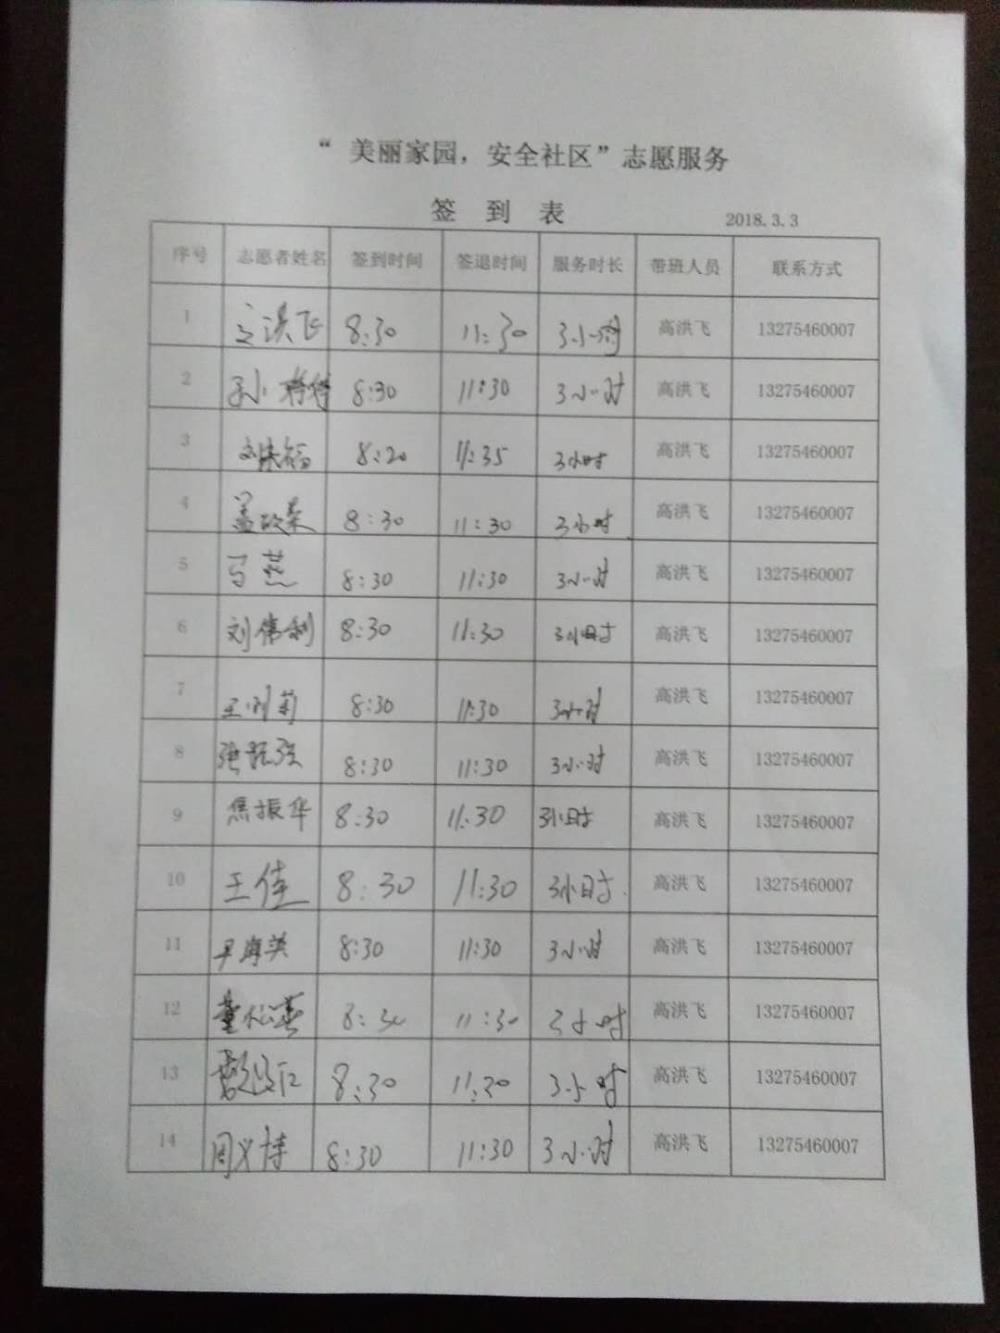 “ 美丽家园，安全社区”志愿服务
签 到 表
2018.3.3
序号 志愿者姓名 签到时间 签退时间 服务时长 带班人员 联系方式
1 洪飞 8:30 11:30 3小时 高洪飞 13275460007
2 孙 8:30 11:30 3小时 高洪飞 13275460007
3 刘 8:20 11:35 3小时 高洪飞 13275460007
4 8:30 11:30 3小时 高洪飞 13275460007
5 马燕 8:30 11:30 3小时 高洪飞 13275460007
6 刘伟利 8:30 11:30 3小时 高洪飞 13275460007
7 王 莉 8:30 11:30 3小时 高洪飞 13275460007
8 张 8:30 11:30 3小时 高洪飞 13275460007
9 焦振华 8:30 11:30 3小时 高洪飞 13275460007
10 王佳 8:30 11:30 3小时 高洪飞 13275460007
11 尹海英 8:30 11:30 3小时 高洪飞 13275460007
12 董松燕 8:30 11:30 3小时 高洪飞 13275460007
13 8:30 11:30 3小时 高洪飞 13275460007
14 周义博 8:30 11:30 3小时 高洪飞 13275460007